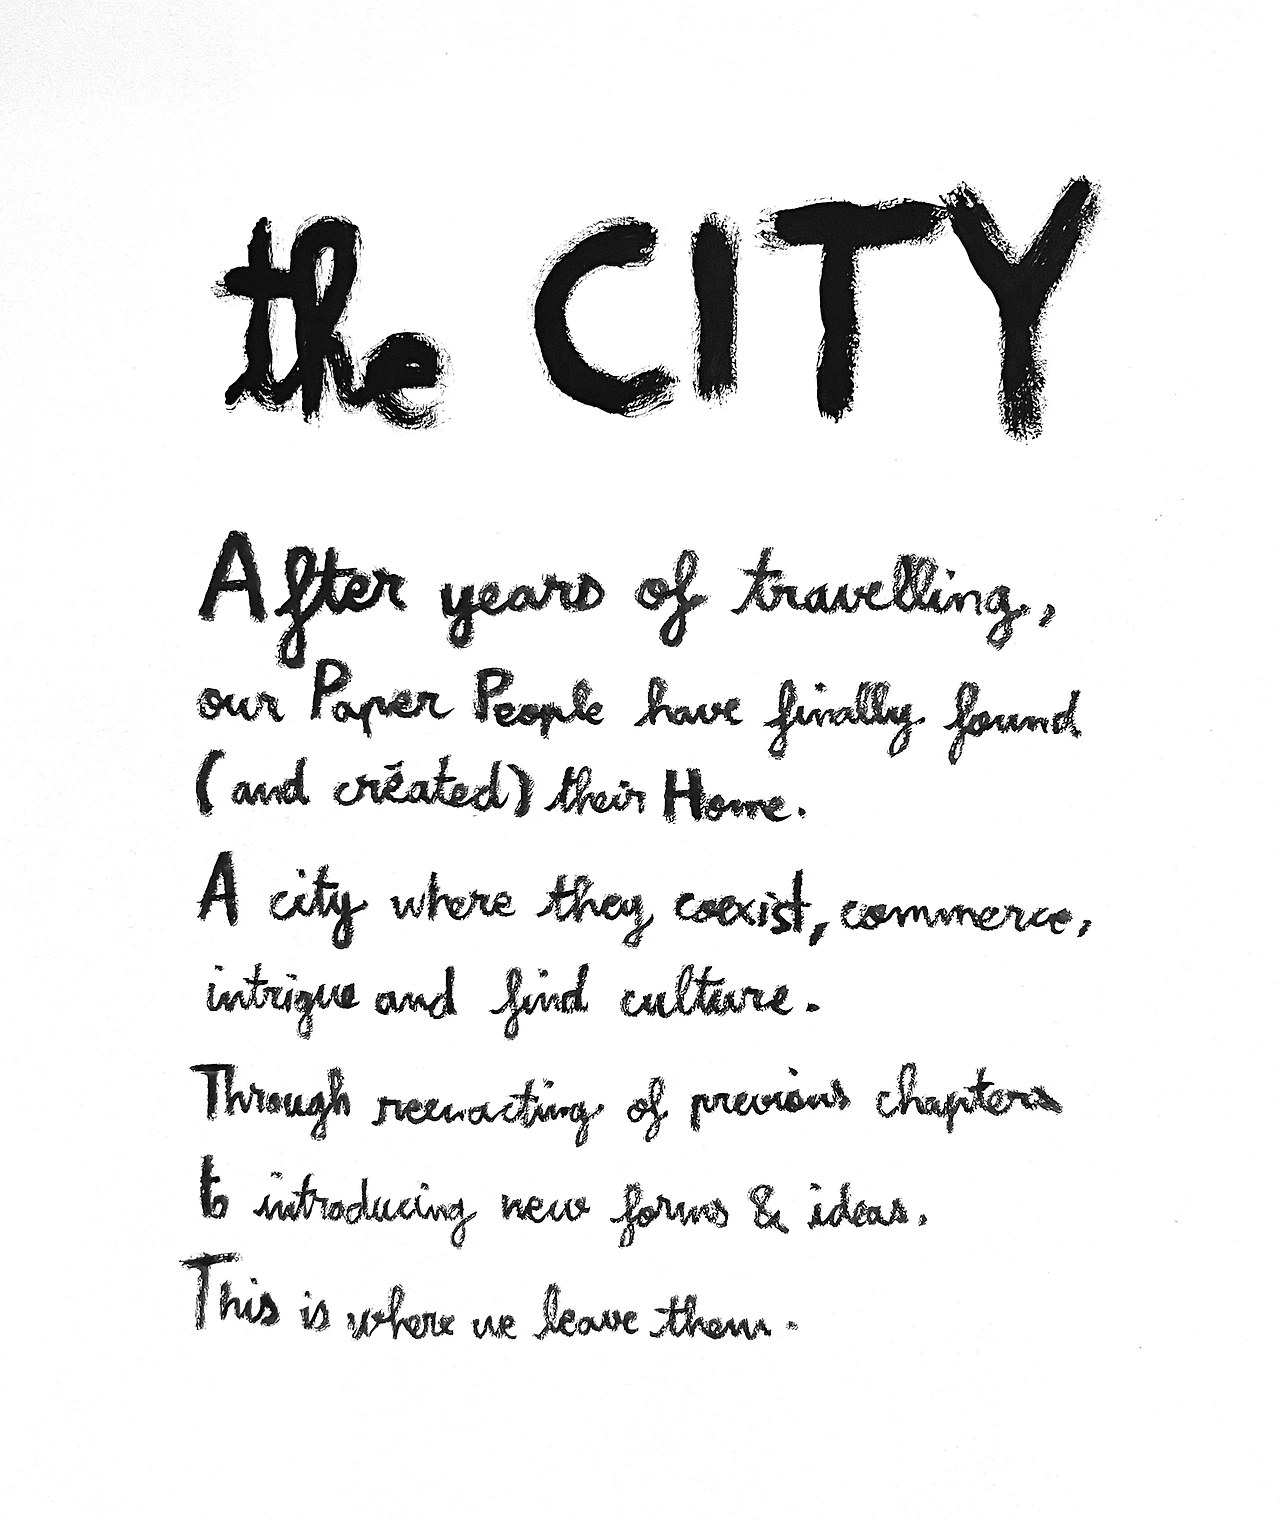 the CITY
After years of travelling,
our Paper People have finally found
(and created) their Home.
A city where they coexist, commerce,
intrigue and find culture.
Through reenacting of previous chapters
to introducing new forms & ideas.
This is where we leave them.